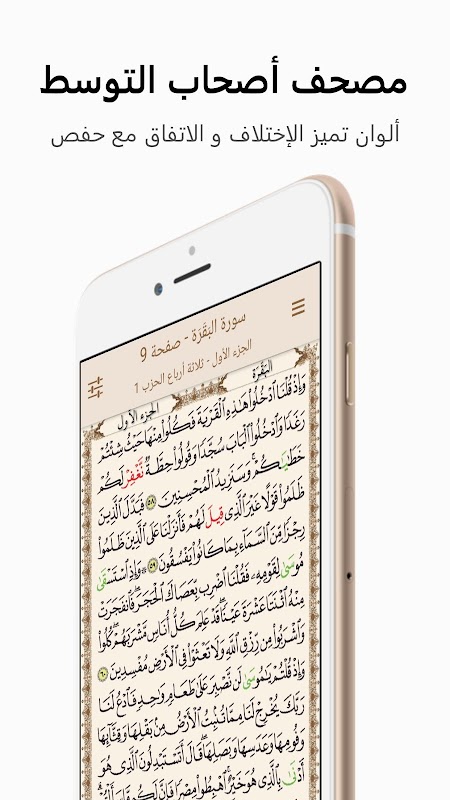 مصحف أصحاب التوسط
ألوان تميز الإختلاف و الاتفاق مع حفص
سورة البَقَرَة - صفحة 9
الجزء الأول - ثلاثة أرباع الحزب 1
البَقَرَة
الجزء الأول
وَإِذْ قُلْنَا ٱدْخُلُوا۟ هَٰذِهِ ٱلْقَرْيَةَ فَكُلُوا۟ مِنْهَا حَيْثُ شِئْتُمْ
رَغَدًا وَٱدْخُلُوا۟ ٱلْبَابَ سُجَّدًا وَقُولُوا۟ حِطَّةٌ نَّغْفِرْ لَكُمْ
خَطَٰيَٰكُمْ وَسَنَزِيدُ ٱلْمُحْسِنِينَ ٥٨ فَبَدَّلَ ٱلَّذِينَ
ظَلَمُوا۟ قَوْلًا غَيْرَ ٱلَّذِى قِيلَ لَهُمْ فَأَنزَلْنَا عَلَى ٱلَّذِينَ ظَلَمُوا۟
رِجْزًا مِّنَ ٱلسَّمَآءِ بِمَا كَانُوا۟ يَفْسُقُونَ ٥٩ وَإِذِ ٱسْتَسْقَىٰ
مُوسَىٰ لِقَوْمِهِۦ فَقُلْنَا ٱضْرِب بِّعَصَاكَ ٱلْحَجَرَ فَٱنفَجَرَتْ
مِنْهُ ٱثْنَتَا عَشْرَةَ عَيْنًا قَدْ عَلِمَ كُلُّ أُنَاسٍ مَّشْرَبَهُمْ كُلُوا۟
وَٱشْرَبُوا۟ مِن رِّزْقِ ٱللَّهِ وَلَا تَعْثَوْا۟ فِى ٱلْأَرْضِ مُفْسِدِينَ ٦٠
وَإِذْ قُلْتُمْ يَٰمُوسَىٰ لَن نَّصْبِرَ عَلَىٰ طَعَامٍ وَٰحِدٍ فَٱدْعُ لَنَا
رَبَّكَ يُخْرِجْ لَنَا مِمَّا تُنۢبِتُ ٱلْأَرْضُ مِنۢ بَقْلِهَا وَقِثَّآئِهَا
وَفُومِهَا وَعَدَسِهَا وَبَصَلِهَا قَالَ أَتَسْتَبْدِلُونَ ٱلَّذِى هُوَ
أَدْنَىٰ بِٱلَّذِى هُوَ خَيْرٌ ٱهْبِطُوا۟ مِصْرًا فَإِنَّ لَكُم